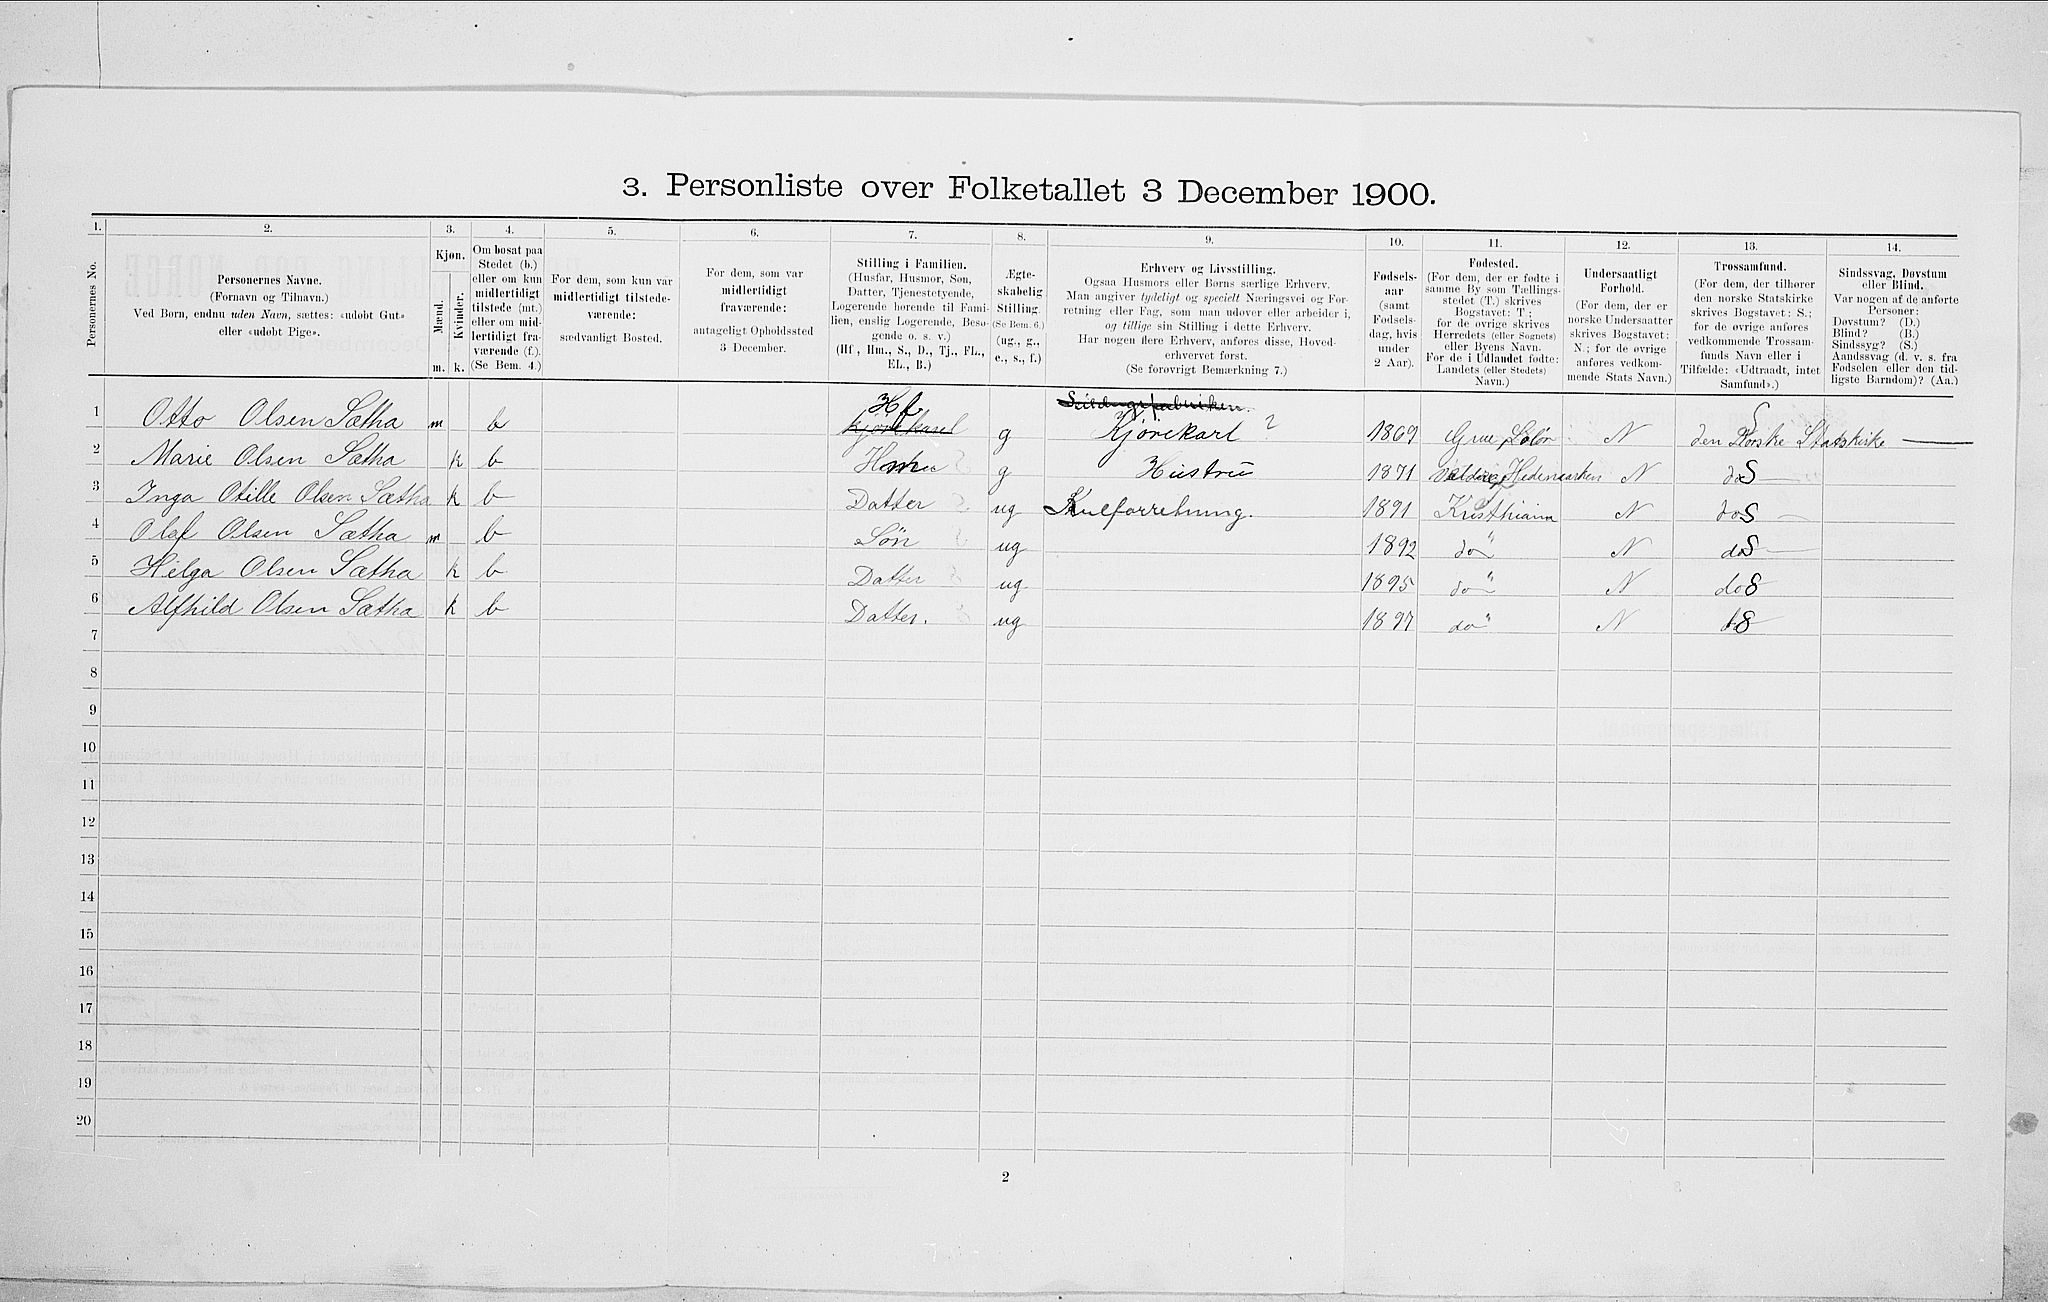 3. Personliste over Folketallet 3 December 1900.
1. 2. 3. 4. 5. 6. 7. 8. 9. 10. 11. 12. 13. 14.
Personernes No.
Personernes Navne.
(Fornavn og Tilnavn.)
Ved Børn, endnu uden Navn, sættes: «udøbt Gut»
eller «udøbt Pige».
Kjøn.
Mænd.
Kvinder.
m. k.
Om bosat paa
Stedet (b.)
eller om kun
midlertidigt
tilstede (mt.)
eller om mid-
lertidigt fra-
værende (f.).
(Se Bem. 4.)
For dem, som kun var
midlertidigt tilstede-
værende:
sædvanligt Bosted.
For dem, som var
midlertidigt
fraværende:
antageligt Opholdssted
3 December.
Stilling i Familien.
(Husfar, Husmor, Søn,
Datter, Tjenestetyende,
Logerende hørende til Fami-
lien, enslig Logerende, Besø-
gende o. s. v.)
(Hf., Hm., S., D., Tj., FL.,
EL., B.)
Ægte-
skabelig
Stilling.
(Se Bem. 6.)
(ug., g.,
e., s., f.)
Erhverv og Livsstilling.
Ogsaa Husmors eller Børns særlige Erhverv.
Man angiver tydeligt og specielt Næringsvei og For-
retning eller Fag, som man udøver eller arbeider i,
og tillige sin Stilling i dette Erhverv.
Har nogen flere Erhverv, anføres disse, Hoved-
erhvervet først.
(Se forøvrigt Bemærkning 7.)
Fødsels-
aar
(samt
Fødsels-
dag, hvis
under
2 Aar).
Fødested.
(For dem, der er fødte i
samme By som Tællings-
stedet (T.) skrives
Bogstavet: T;
for de øvrige skrives
Herredets (eller Sognets)
eller Byens Navn.
For de i Udlandet fødte:
Landets (eller Stedets)
Navn.)
Undersaatligt
Forhold.
(For dem, der er
norske Undersaatter
skrives Bogstavet:
N.; for de øvrige
anføres vedkom-
mende Stats Navn.)
Trossamfund.
(For dem, der tilhører
den norske Statskirke
skrives Bogstavet: S.;
for de øvrige anføres
vedkommende Trossam-
funds Navn eller i
Tilfælde: «Udtraadt, intet
Samfund».)
Sindssvag, Døvstum
eller Blind.
Var nogen af de anførte
Personer:
Døvstum? (D.)
Blind? (B.)
Sindssyg? (S.)
Aandssvag (d. v. s. fra
Fødselen eller den tid-
ligste Barndom)? (Aa.)
Hf
1 Otto Olsen Sætha m b Kjørekarl g Kjörekarl ? 1869 Grue Solør N den Norske Statskirke S
2 Marie Olsen Sætha k b g Hustru 1871 Hedemarken N do S
3 Inga Otille Olsen Sætha k b Datter ug 1891 Kristhiania N do S
4 Olef Olsen Sætha m b Søn ug 1892 do " N do S
5 Helga Olsen Sætha k b Datter ug 1895 do " N do S
6 Alfhild Olsen Sætha k b Datter. ug 1897 do " N S
7
8
9
10
11
12
13
14
15
16
17
18
19
20
2